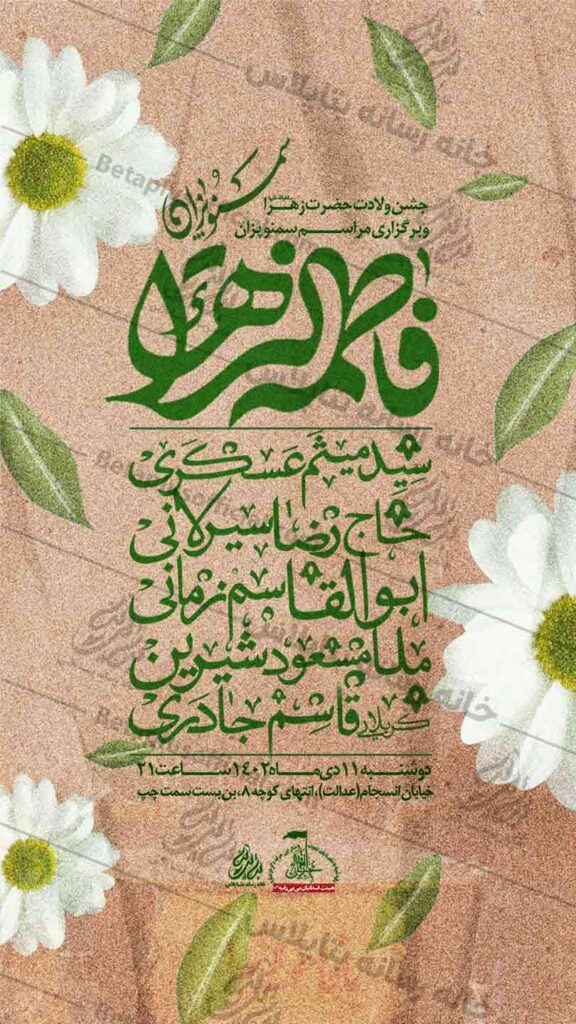 سمنوپزان
جشن ولادت حضرت زهرا
و برگزاری مراسم سمنوپزان
فاطمه زهرا
سید میثم عسکری
حاج رضا سیرلانی
ابوالقاسم نرمانی
ملا مسعود شیرین
کربلایی قاسم جادری
دوشنبه ۱۱ دی ماه ۱۴۰۲ ساعت ۲۱
خیابان انسجام (عدالت)، انتهای کوچه ۸، بن بست سمت چپ
خانه رسانه بتاپلاس